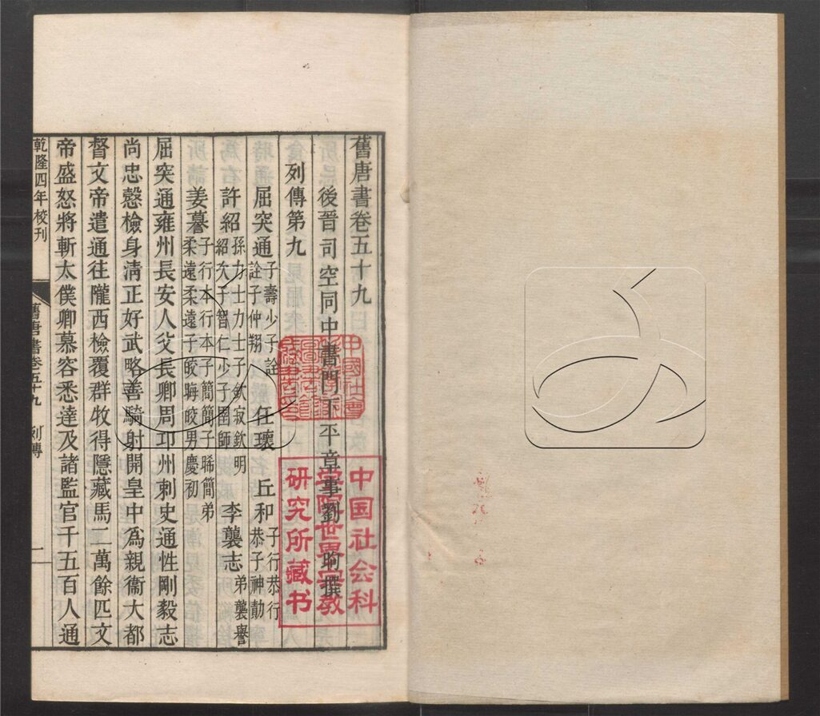 舊唐書卷五十九
後晉司空同中書門下平章事劉昫撰
列傳第九
屈突通 子壽少子詮 詮子仲翔 任瓌 丘和 子行恭行 恭子神勣
許紹 孫力士力士子欽寂欽明 紹次子智仁少子圉師 李襲志 弟襲譽
姜謩 子行本行本子簡簡子晞簡弟 柔遠柔遠子皎晦皎男慶初
屈突通雍州長安人父長卿周邛州刺史通性剛毅志
尚忠慤檢身清正好武略善騎射開皇中爲親衞大都
督文帝遣通往隴西檢覆群牧得隱藏馬二萬餘匹文
帝盛怒將斬太僕卿慕容悉達及諸監官千五百人通
乾隆四年校刊
舊唐書卷五十九 列傳
中国社会科
学院世界宗教
研究所藏书